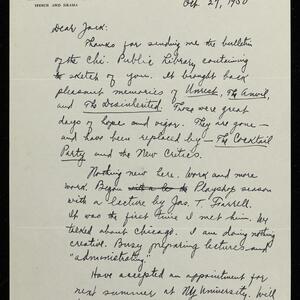 SPEECH AND DRAMA
Oct. 27, 1950
Dear Jack:
Thanks for sending me the bulletin
of the Chi. Public Library containing
sketch of you. It brought back
pleasant memories of Unrest, The Anvil,
and The Disinherited. Those were great
days of hope and vigor. They are gone —
and have been replaced by — The Cocktail
Party and the New Critics.
Nothing new here. Work and more
work. Began with a le Playshop season
with a lecture by Jas. T. Farrell.
It was the first time I met him. We
talked about Chicago. I am doing nothing
creative. Busy preparing lectures and
"administrating."
Have accepted an appointment for
next summer at NY University. Will